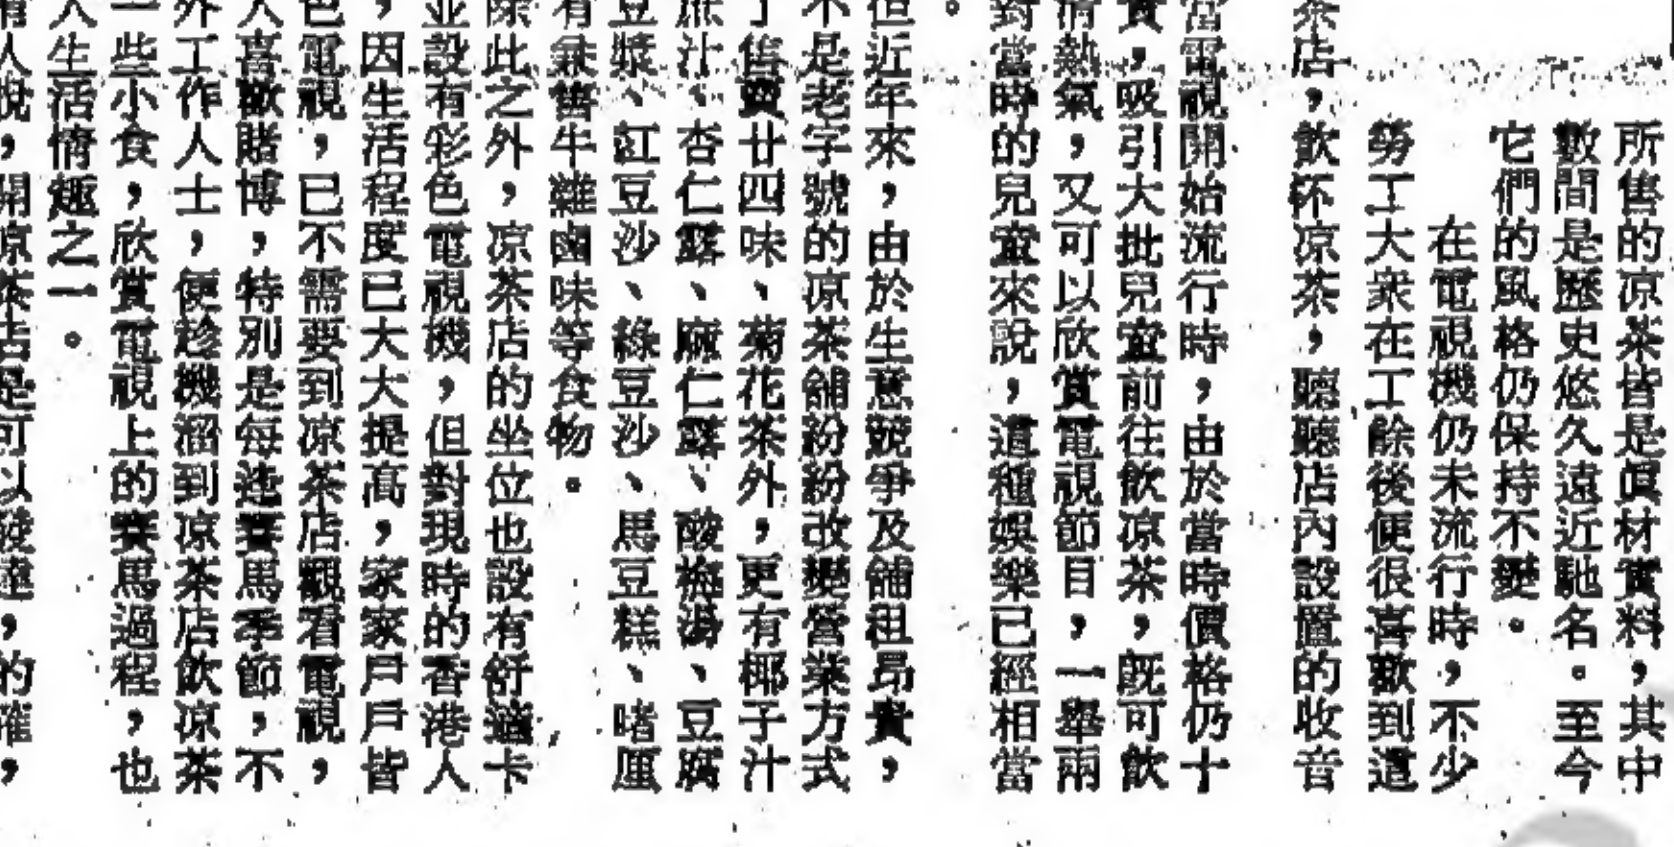 所售的凉茶皆是眞材實料，其中
數間是歷史悠久遠近馳名。至今
它們的風格仍保持不變。
在電視機仍未流行時，不少
勞工大衆在工餘後便很喜歡到這
茶店，飲杯凉茶，聽聽店內設置的收音
當電視開始流行時，由於當時價格仍十
貴，吸引大批兒童前往飲凉茶，既可飲
情熱氣，又可以欣賞電視節目，一舉兩
對當時的兒童來說，這種娛樂已經相當
。
但近年來，由於生意競爭及舖租昂貴，
不是老字號的凉茶舖紛紛改變營業方式
了售賣廿四味、菊花茶外，更有椰子汁
蔗汁、杏仁露、麻仁露、酸梅湯、豆腐
豆漿、紅豆沙、綠豆沙、馬豆糕、啫厘
有兼售牛雜鹵味等食物。
除此之外，凉茶店的坐位也設有舒適卡
並設有彩色電視機，但對現時的香港人
，因生活程度已大大提高，家家戶戶皆
色電視，已不需要到凉茶店觀看電視，
人喜歡賭博，特別是每逢賽馬季節，不
外工作人士，便趁機溜到凉茶店飲凉茶
一些小食，欣賞電視上的賽馬過程，也
人生活情趣之一。
情人說，開凉茶店是可以發達，的確，